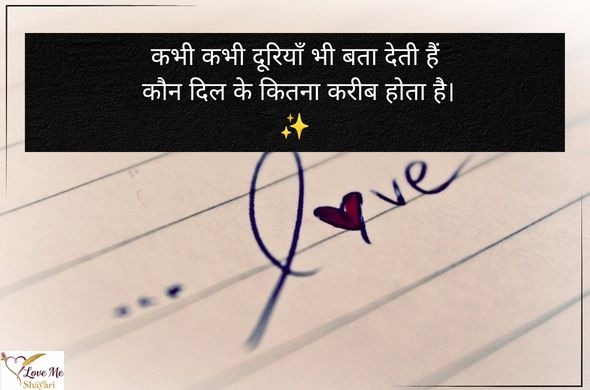 कभी कभी दूरियाँ भी बता देती हैं
कौन दिल के कितना करीब होता है।
✨
... love
Love Me
Shayari